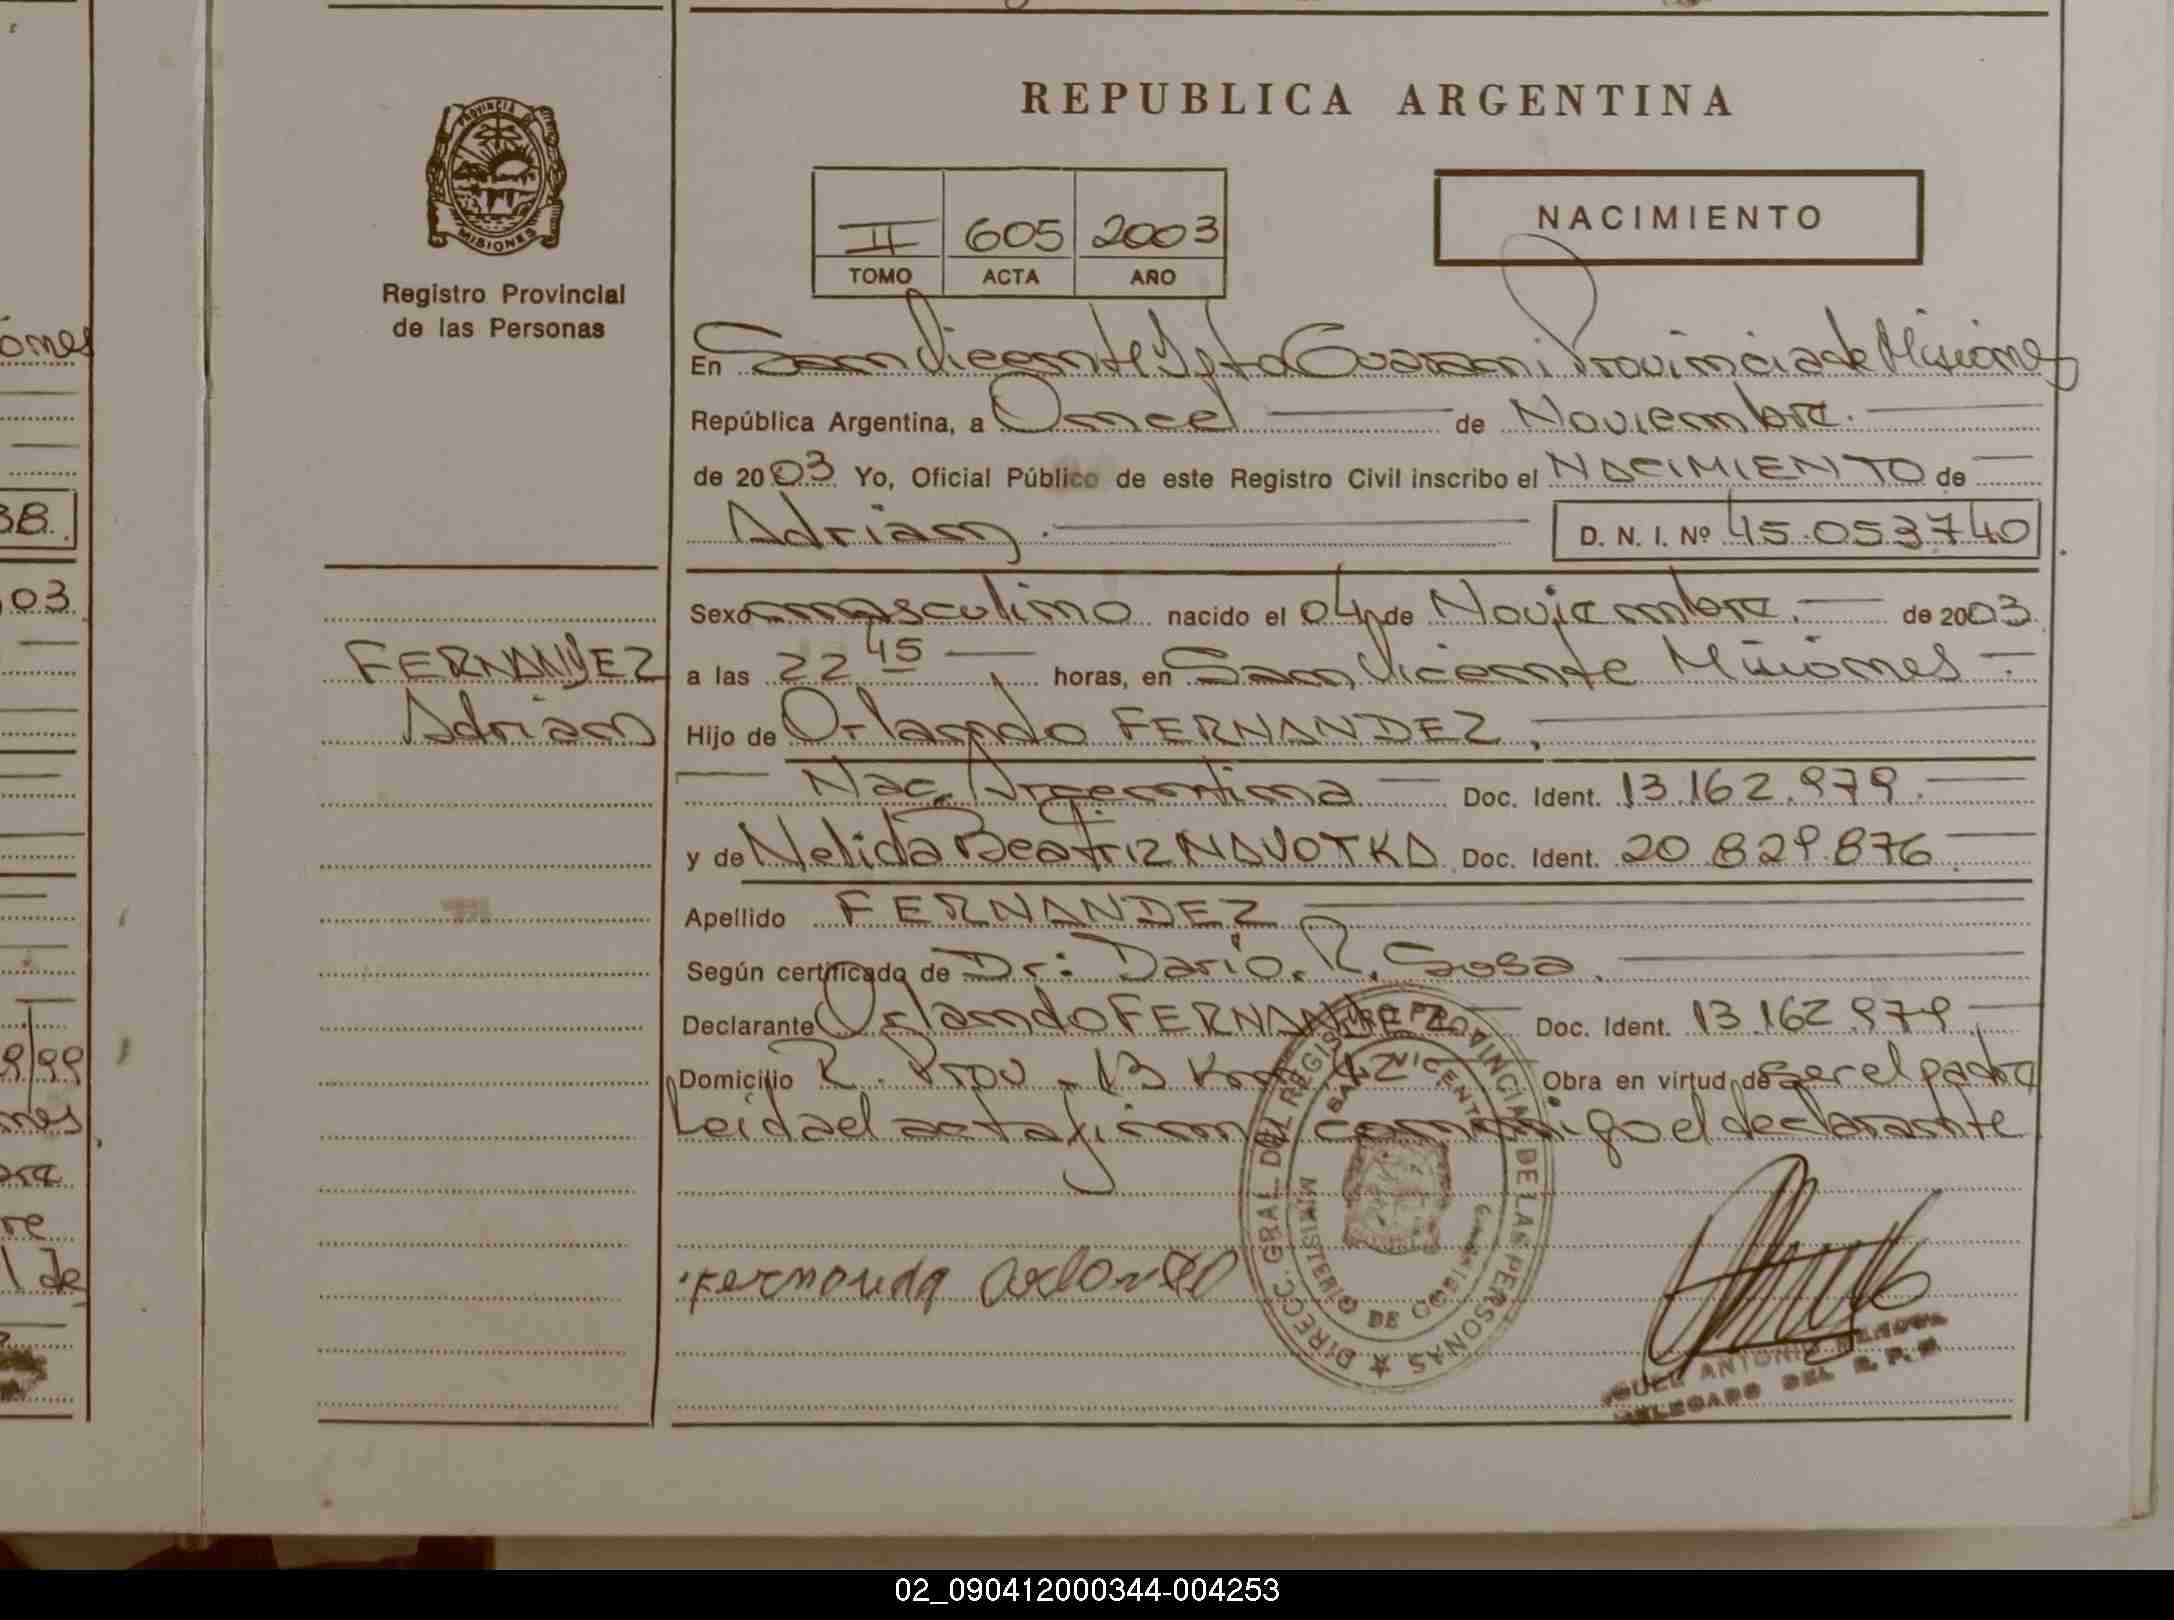 REPUBLICA ARGENTINA
PROVINCIA DE
MISIONES
Registro Provincial
de las Personas
II 605 2003
TOMO ACTA AÑO
NACIMIENTO
En San Vicente Dpto Guarani Provincia de Misiones
República Argentina, a Once de Noviembre.
de 2003 Yo, Oficial Público de este Registro Civil inscribo el NACIMIENTO de
Adrian. D. N. I. Nº 45.053740
Sexo masculino nacido el 04 de Noviembre. de 2003
FERNANDEZ
Adrian
a las 22 45 horas, en San Vicente Misiones
Hijo de Orlando FERNANDEZ,
Nac. Argentina Doc. Ident. 13.162.979.
y de Nelida Beatriz NAVOTKA Doc. Ident. 20.829.876
Apellido FERNANDEZ
Según certificado de Dr: Dario. R. Sosa.
Declarante Orlando FERNANDEZ Doc. Ident. 13.162.979
Domicilio R. Prov. 13 Km 42 Obra en virtud de ser el padre
Leida el acta firma conmigo el declarante
DIRECC. GRAL DEL REGISTRO PROVINCIAL DE LAS PERSONAS
SAN VICENTE
MINISTERIO DE GOBIERNO
ANTONIO
DELEGADO DEL R. P. P.
omes
38.
03
9/99
nes
re
l de
02_090412000344-004253